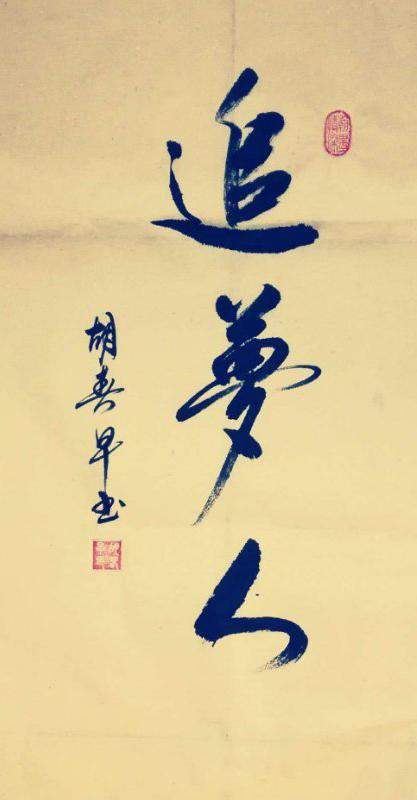 追夢人
胡春早书